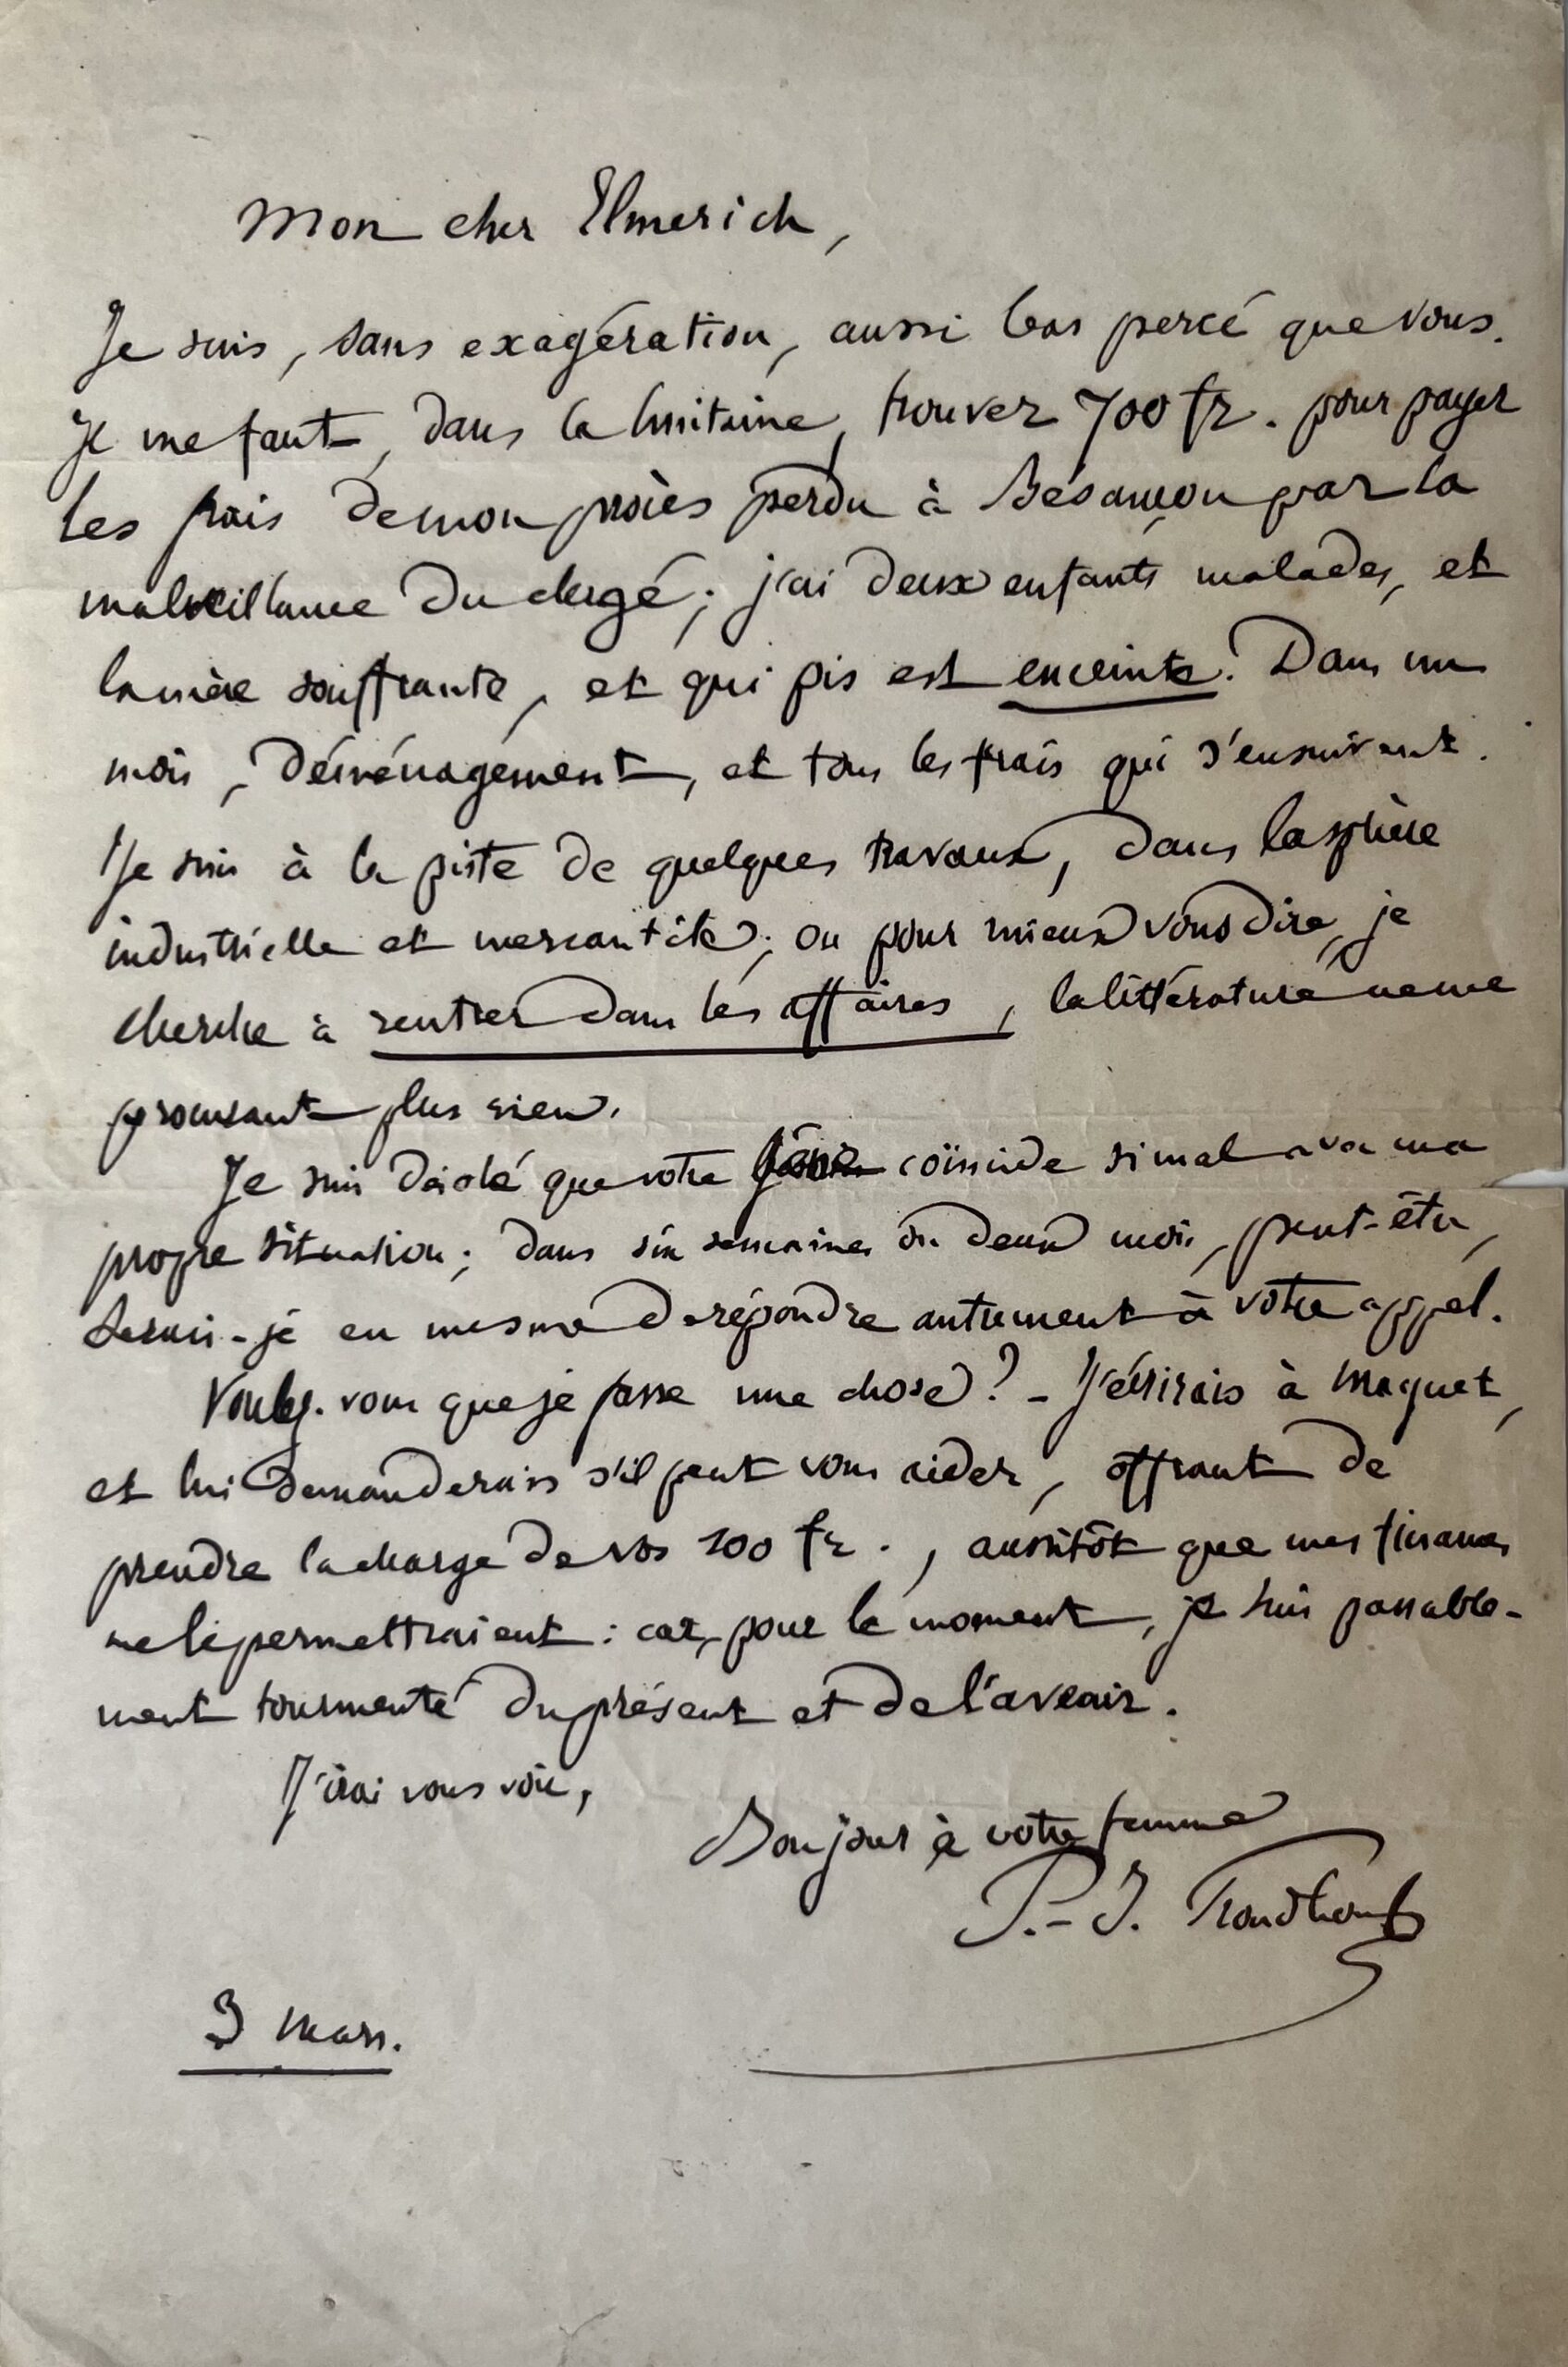 Mon cher Elmerich,
Je suis, sans exagération, aussi bas percé que vous.
Il me faut, dans la huitaine, trouver 700 fr. pour payer
les frais de mon procès perdu à Besançon par la
malveillance du clergé; j'ai deux enfants malades, et
la mère souffrante, et qui pis est enceinte. Dans un
mois, déménagement, et tous les frais qui s'ensuivent.
Je suis à la piste de quelques travaux, dans la sphère
industrielle et mercantile; ou pour mieux vous dire, je
cherche à rentrer dans les affaires, la littérature ne me
produisant plus rien.
Je suis désolé que votre gêne coïncide si mal avec ma
propre situation; dans six semaines ou deux mois, peut-être,
serais-je en mesure de répondre autrement à votre appel.
Voulez-vous que je fasse une chose? - J'écrirais à Maguet,
et lui demanderais s'il peut vous aider, offrant de
prendre la charge de vos 100 fr., aussitôt que mes finances
me le permettraient: car, pour le moment, je suis passable-
ment tourmenté du présent et de l'avenir.
J'irai vous voir,
Bonjour à votre femme
P.-J. Proudhon
3 mars.